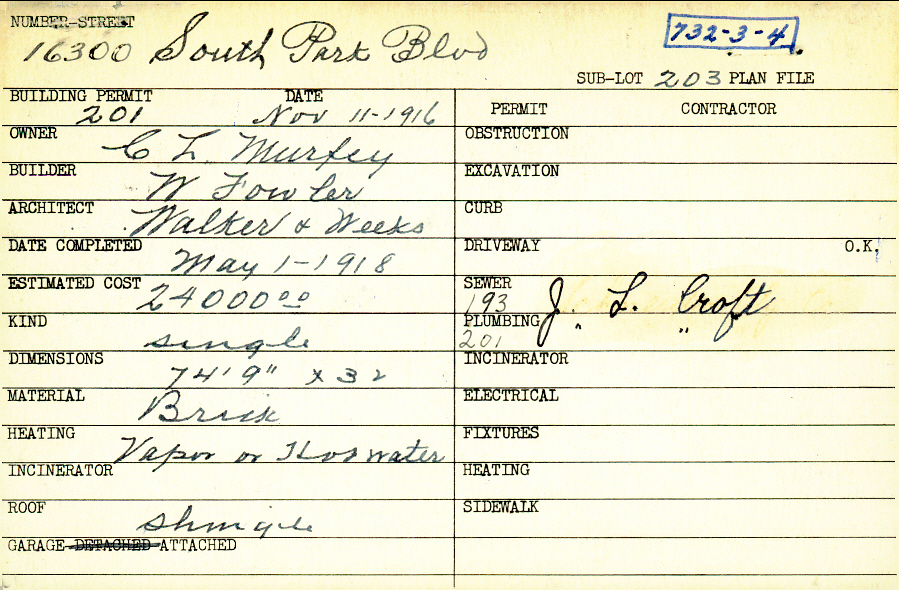 NUMBER-STREET
16300 South Park Blvd
732-3-4
SUB-LOT 203 PLAN FILE
BUILDING PERMIT DATE
201 Nov 11-1916
OWNER C L Murfey
BUILDER W Fowler
ARCHITECT Walker & Weeks
DATE COMPLETED May 1-1918
ESTIMATED COST 24000 00
KIND single
DIMENSIONS 74'9" x 32
MATERIAL Brick
HEATING Vapor or Hot water
INCINERATOR
ROOF shingle
GARAGE-DETACHED-ATTACHED
PERMIT CONTRACTOR
OBSTRUCTION
EXCAVATION
CURB
DRIVEWAY O.K.
SEWER
193 J. L. Croft
PLUMBING
201 " "
INCINERATOR
ELECTRICAL
FIXTURES
HEATING
SIDEWALK